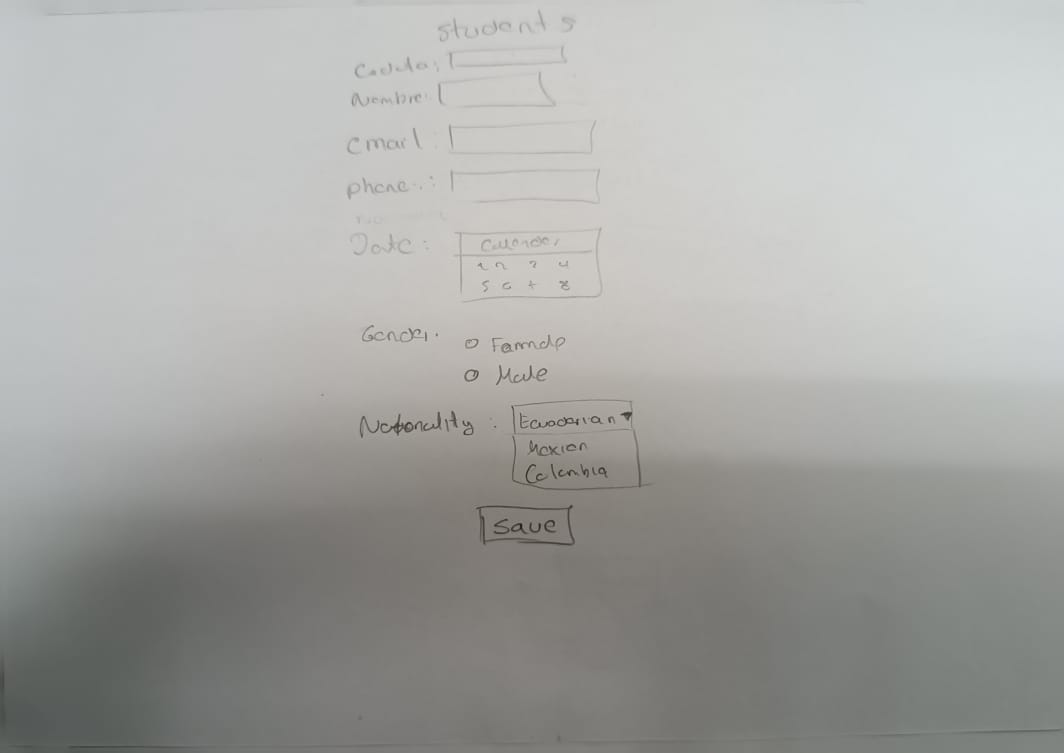 Students
Cedula:
Nombre:
email:
phone:
Date:
Calender
1 2 3 4
5 6 7 8
Gender:
Female
Male
Nationality:
Ecuadorian
Mexican
Colombia
Save